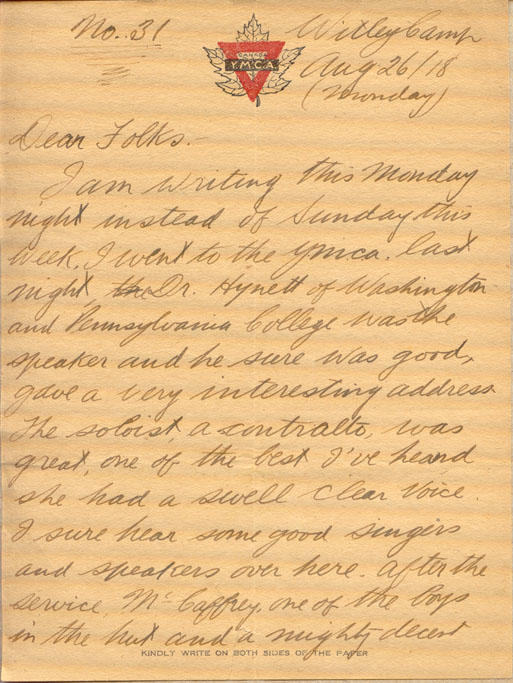 No. 31
Witley Camp
CANADA
Y.M.C.A.
Aug 26/18
(Monday)
Dear Folks.-
I am writing this Monday
night instead of Sunday this
week. I went to the Ymca. last
night, the Dr. Hynett of Washington
and Pennsylvania College was the
speaker and he sure was good,
gave a very interesting address
The soloist, a contralto, was
great, one of the best I've heard
she had a swell clear voice.
I sure hear some good singers
and speakers over here. After the
service, McCaffrey, one of the boys
in the hut and a mighty decent
KINDLY WRITE ON BOTH SIDES OF THE PAPER